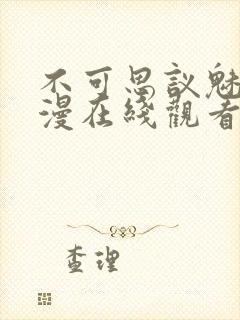 不可思议魅
漫在綫觀看
查理